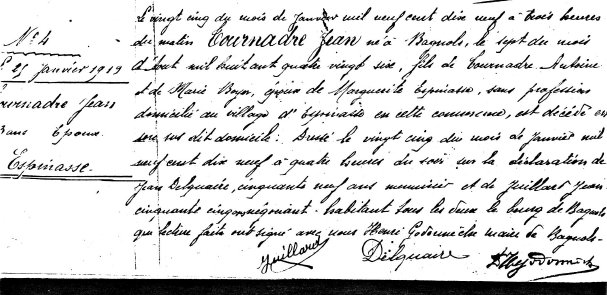 N° 4
25 Janvier 1919
Tournadre Jean
Epoux
Espinasse.
Le vingt cinq du mois de Janvier mil neuf cent dix neuf à trois heures
du matin Tournadre Jean né à Bagnols, le sept du mois
d'Août mil huit cent quatre vingt six, fils de Tournadre Antoine
et de Marie Boyer, époux de Marguerite Espinasse, sans profession
domicilié au village d'Espinasse en cette commune, est décédé en
son sus dit domicile. Dressé le vingt cinq du mois de Janvier mil
neuf cent dix neuf à quatre heures du soir sur la déclaration de
Jean Delquaire, cinquante neuf ans menuisier et de Juillard Jean
cinquante cinq ans négociant. habitant tous les deux le bourg de Bagnols
qui lecture faite ont signé avec nous Henri Godonnèche maire de Bagnols.
Juillard Delquaire HGodonnèche